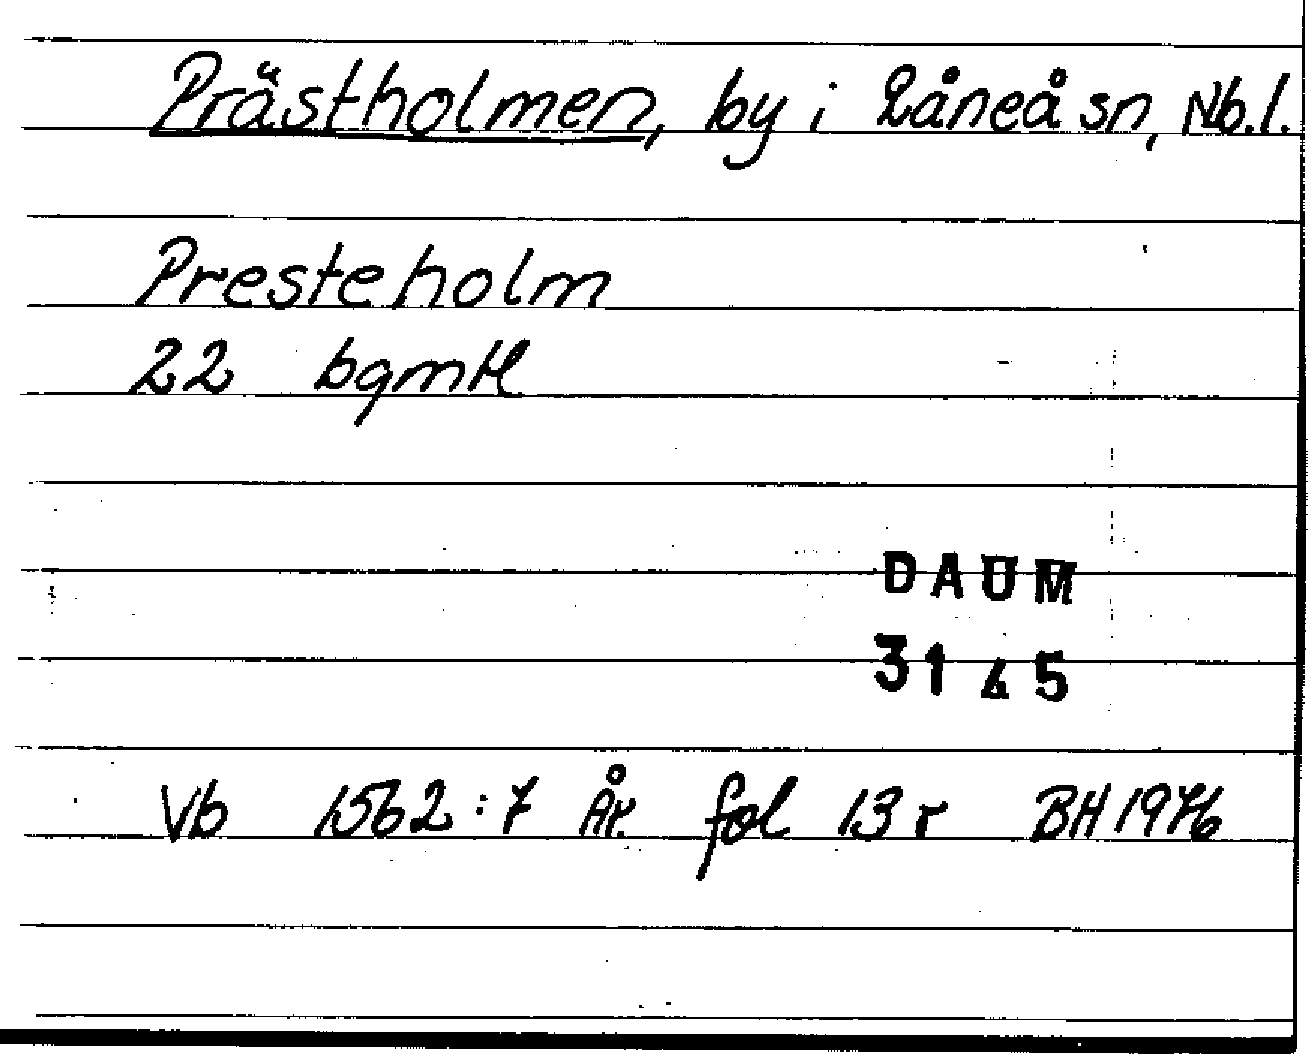 Prästholmen, by i Råneå sn, Nb.l.
Presteholm
22 bgmtl
DAUM
3145
Vb 1562:7 År. fol 13r BH 1976